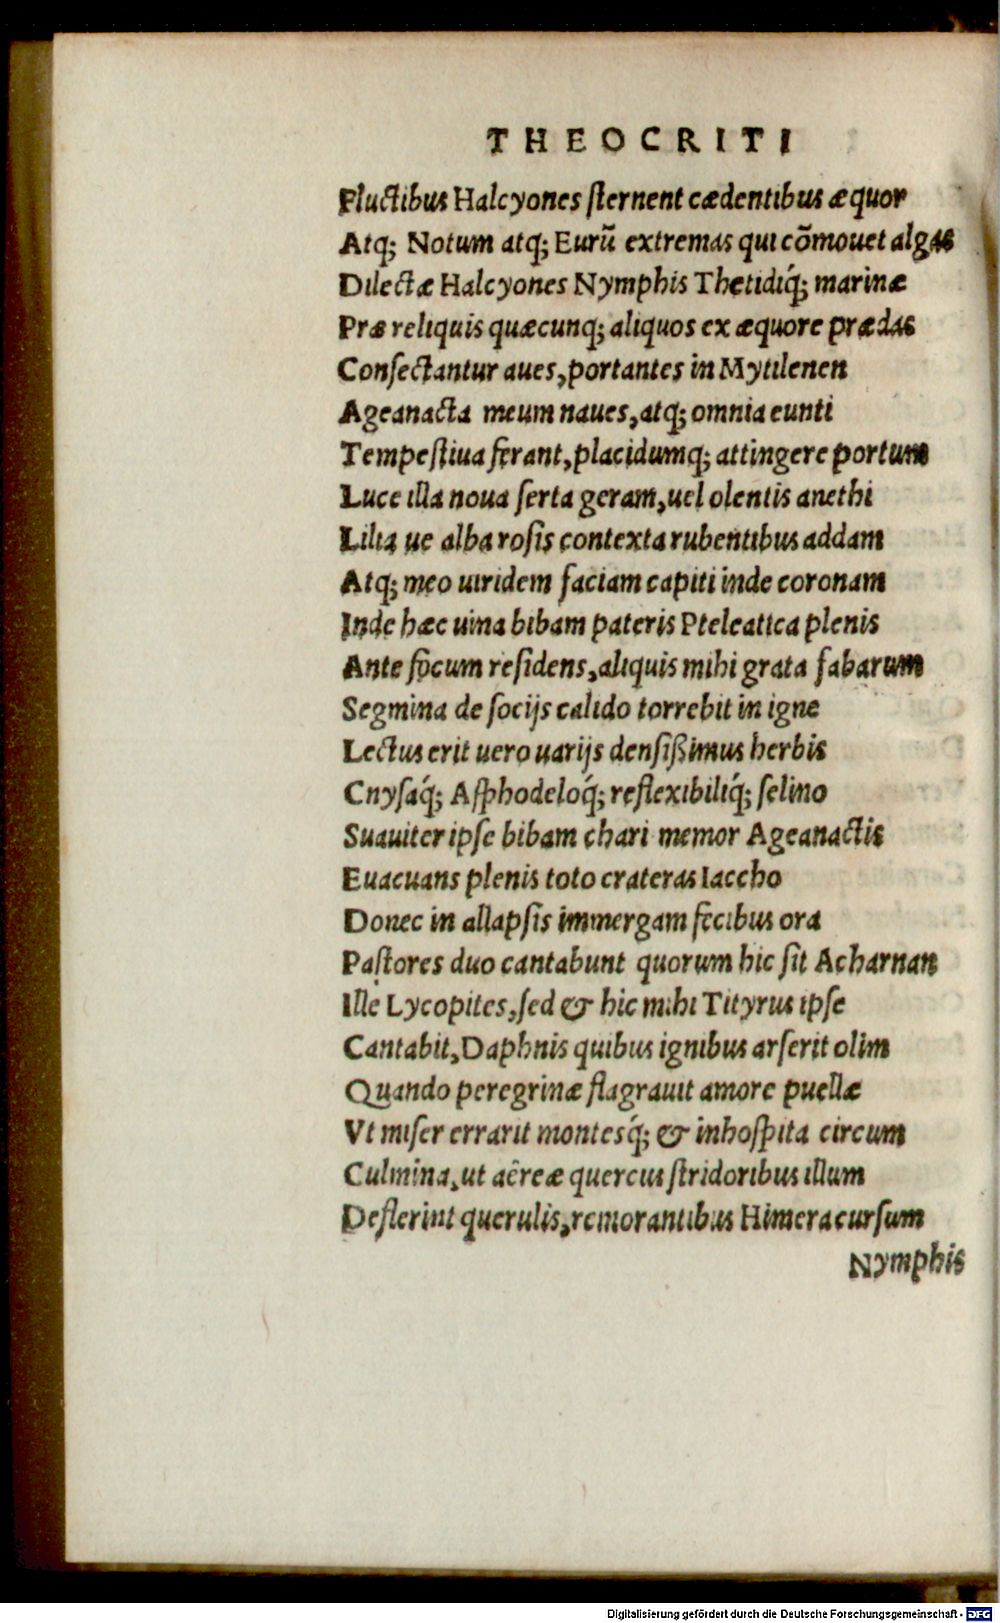 THEOCRITI
Fluctibus Halcyones sternent cædentibus æquor
Atq; Notum atq; Eurũ extremas qui cõmouet algas
Dilectæ Halcyones Nymphis Thetidiq́; marinæ
Præ reliquis quæcunq; aliquos ex æquore prædas
Consectantur aues, portantes in Mytilenen
Ageanacta meum naues, atq; omnia eunti
Tempestiua ferant, placidumq; attingere portum
Luce illa noua serta geram, uel olentis anethi
Lilia ue alba rosis contexta rubentibus addam
Atq; meo uiridem faciam capiti inde coronam
Inde hæc uina bibam pateris Pteleatica plenis
Ante focum residens, aliquis mihi grata fabarum
Segmina de socijs calido torrebit in igne
Lectus erit uero uarijs densißimus herbis
Cnysaq́; Asphodeloq́; reflexibiliq́; selino
Suauiter ipse bibam chari memor Ageanactis
Euacuans plenis toto crateras Iaccho
Donec in allapsis immergam fecibus ora
Pastores duo cantabunt quorum hic sit Acharnan
Ille Lycopites, sed & hic mihi Tityrus ipse
Cantabit, Daphnis quibus ignibus arserit olim
Quando peregrinæ flagrauit amore puellæ
Vt miser errarit montesq́; & inhospita circum
Culmina, ut aëreæ quercus stridoribus illum
Deflerint querulis, remorantibus Himera cursum
Nymphis
Digitalisierung gefördert durch die Deutsche Forschungsgemeinschaft - DFG